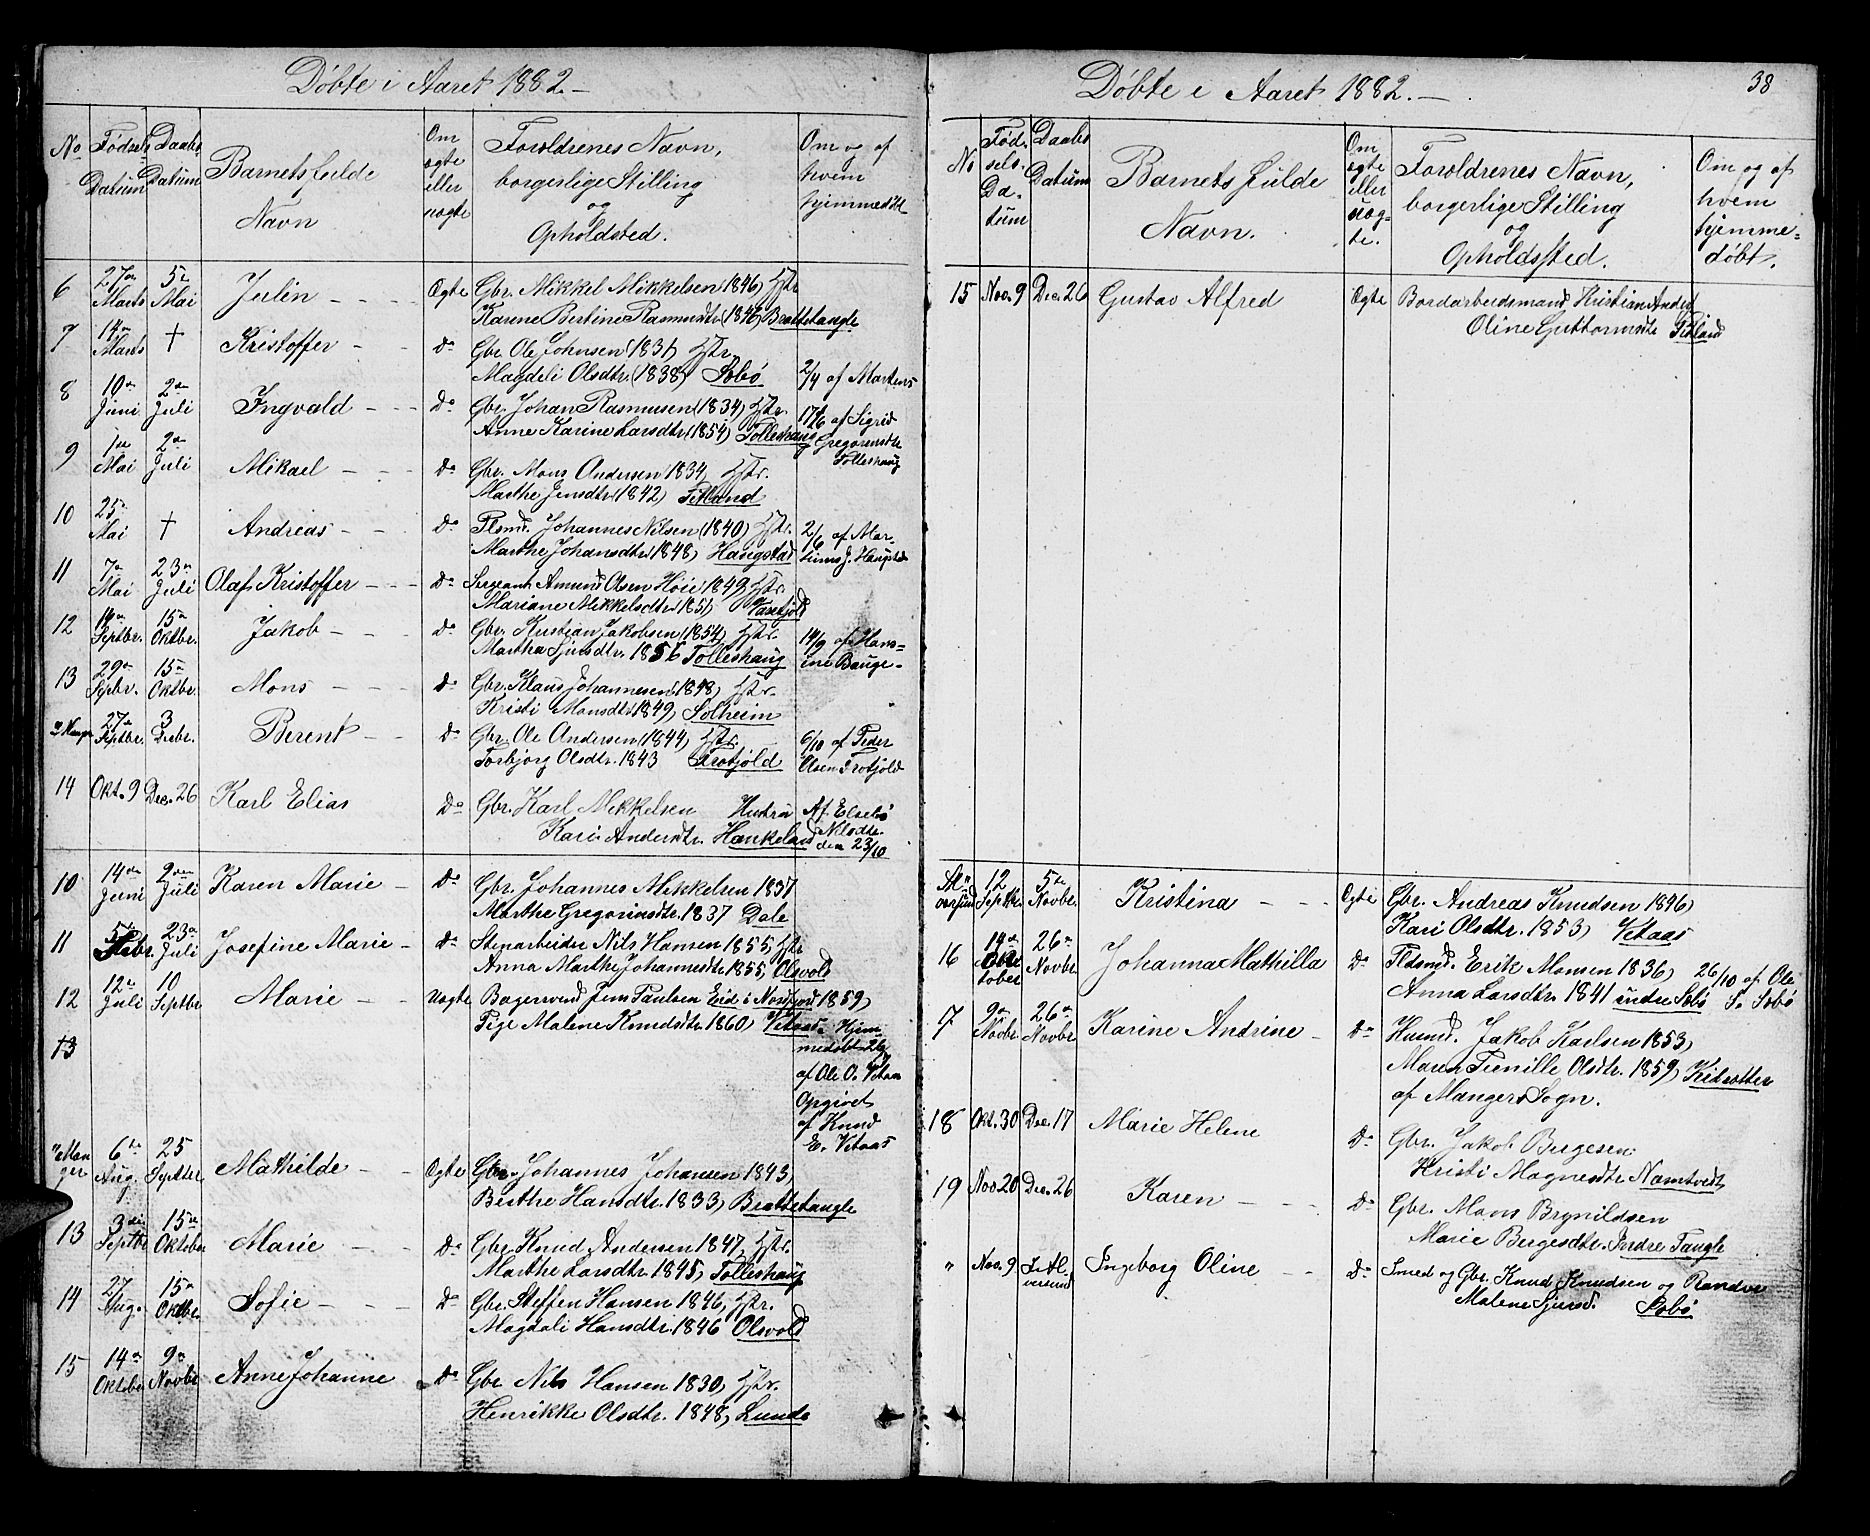 Døbte i Aaret 1882.-
No
Fødsels Datum
Daabs Datum
Barnets fulde Navn
Om ægte eller uægte
Forældrenes Navn, borgerlige Stilling og Opholdsted.
Om og af hvem hjemmedøbt
6 27de Marts 5te Mai Julin - - - Ægte Gbr. Mikkel Mikkelsen (1846) Hstr.
Karine Bertine Rasmusdtr (1846) Brattetangle
7 14de Marts † Kristoffer - - Do Gbr. Ole Johnsen (1831) Hstr.
Magdeli Olsdtr. (1838) Sæbø 2/4 af Martens
8 10de Juni 2den Juli Ingvald - - - Do Gbr. Johan Rasmusen (1834) Hstr. 17/6 af Sigrid
Anne Karine Larsdtr (1854) Tolleshaug Gregoriusdtr
Tolleshaug
9 1ste Mai 2den Juli Mikael - - - Do Gbr. Mons Andersen 1834, Hstr.
Marthe Jensdtr (1842) Titland
10 25de Mai † Andreas - - Do Johannes Nilsen (1840) Hstr. 2/6 af Mar-
Marthe Johansdtr. 1848) Haugstad tinus J. Haugstad
11 7de Mai 23de Juli Olaf Kristoffer - - - Do Sergeant Amund Olsen Høie 1849, Hstr.
Mariane Mikkelsdtr 1851,
12 Septbr. 15de Oktbr. Jakob - - - Do Gbr. Kristian Jakobsen (1854) Hstr. 14/9 af Hans-
Martha Sjursdtr. 1856 Tolleshaug ine Bauge.-
13 29de Septbr. 15de Oktbr. Mons - - - Do Gbr. Klaus Johannesen 1848, Hstr.
Kristi Monsdtr 1849, Solheim
" Manger 27de Septbr. 3 Decbr. Berent - - Do Gbr. Ole Andersen (1844) Hstr. 6/10 af Peder
Torbjørg Olsdtr. 1843 Trotjold Olsen Trotjold
14 Okt. 9 Dec. 26 Karl Elias Do Gbr. Karl Mikkelsen Hustru Af Elsebø
Kari Andersdtr. Hankeland Nilsdtr.
den 23/10
10 14de Juni 2den Juli Karen Marie - Do Gbr. Johannes Mikkelsen 1837
Marthe Gregoriusdtr. 1837 Dale
11 5te Febr. 23de Juli Josefine Marie - Do Stenarbeider Nils Hansen 1855, Hstr
Anna Marthe Johannesdtr 1855, Olsvold
12 12te Juli 10 Septbr Marie - - Uægte Bagersvend Jens Paulsen Eid i Nordfjord 1859,
Pige Malene Knudsdtr. 1860, Vetaas Hjem-
13 medøbt
af Ole O. Vetaas
Opgivet
af Knud
E. Vetaas
" Manger 6te Aug. 25 Septbr Mathilde - - Ægte Gbr. Johannes Johansen 1843,
Birthe Hansdtr. 1833, Brattetangle
13 3die Septbr 15de Oktober Marie - - - Do Gbr. Knud Andersen 1847, Hstr.
Marthe Larsdtr. 1845, Tolleshaug
14 27 Aug. 15de Oktbr. Sofie - - - Do Gbr. Steffen Hansen 1846, Hstr.
Magdali Hansdtr. 1846 Olsvold
15 14de Oktober 9de Novbr Anne Johanne Do Gbr Nils Hansen 1830, Hstr.
Henrikke Olsdtr. 1848, Lunde
Døbte i Aaret 1882.- 38
No
Fødsels Datum
Daabs Datum
Barnets fulde Navn.
Om ægte eller uægte.
Forældrenes Navn, borgerlige Stilling og Opholdssted.
Om og af hvem hjemmedøbt.
15 Nov. 9 Dec. 26 Gustav Alfred Ægte Bordarbeidsmand Kristian Anders
Oline Guttormsdtr Titland
12 Septbr. 5te Novbr. Kristina - - - Ægte Gbr. Andreas Knudsen 1846,
Kari Olsdtr. 1853, Vetaas
16 14de Oktober 26de Novbr Johanna Mathilla Do Erik Monsen 1836, 26/10 af Ole
Anna Larsdtr. 1841 indre Sæbø S. Sæbø
17 9de Novbr 26de Novber Karine Andrine - Do Husmd. Jakob Karlsen 1853,
Maren Pernille Olsdtr. 1859,
af Mangers Sogn.
18 Okt. 30 Dec. 17 Marie Helene Do Gbr. Jakob Bergesen
Kristi Magnesdtr Namtvedt
19 Nov. 20 Dec. 26 Karen - - - Do Gbr. Mons Brynildsen
Marie Bergesdtr. Indre Tangle
" Nov. 9 Ingeborg Oline - - Do Smed og Gbr. Knud Knudsen og Randvi
Malene Sjursd. Sæbø